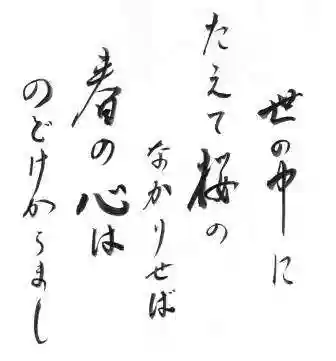 世の中に
たえて桜の
なかりせば
春の心は
のどけからまし